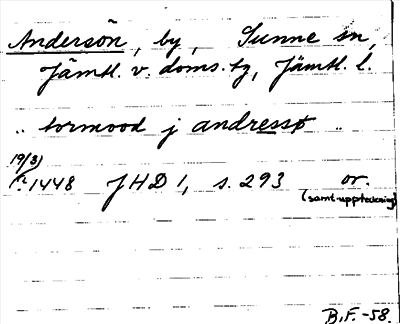 Andersön, by, Sunne sn,
Jämtl. v. doms. tg, Jämtl. l.
.. tormood j andressø ..
19/8
1448 JHD 1, s. 293 or.
(samt. uppteckning)
B.F. -58.